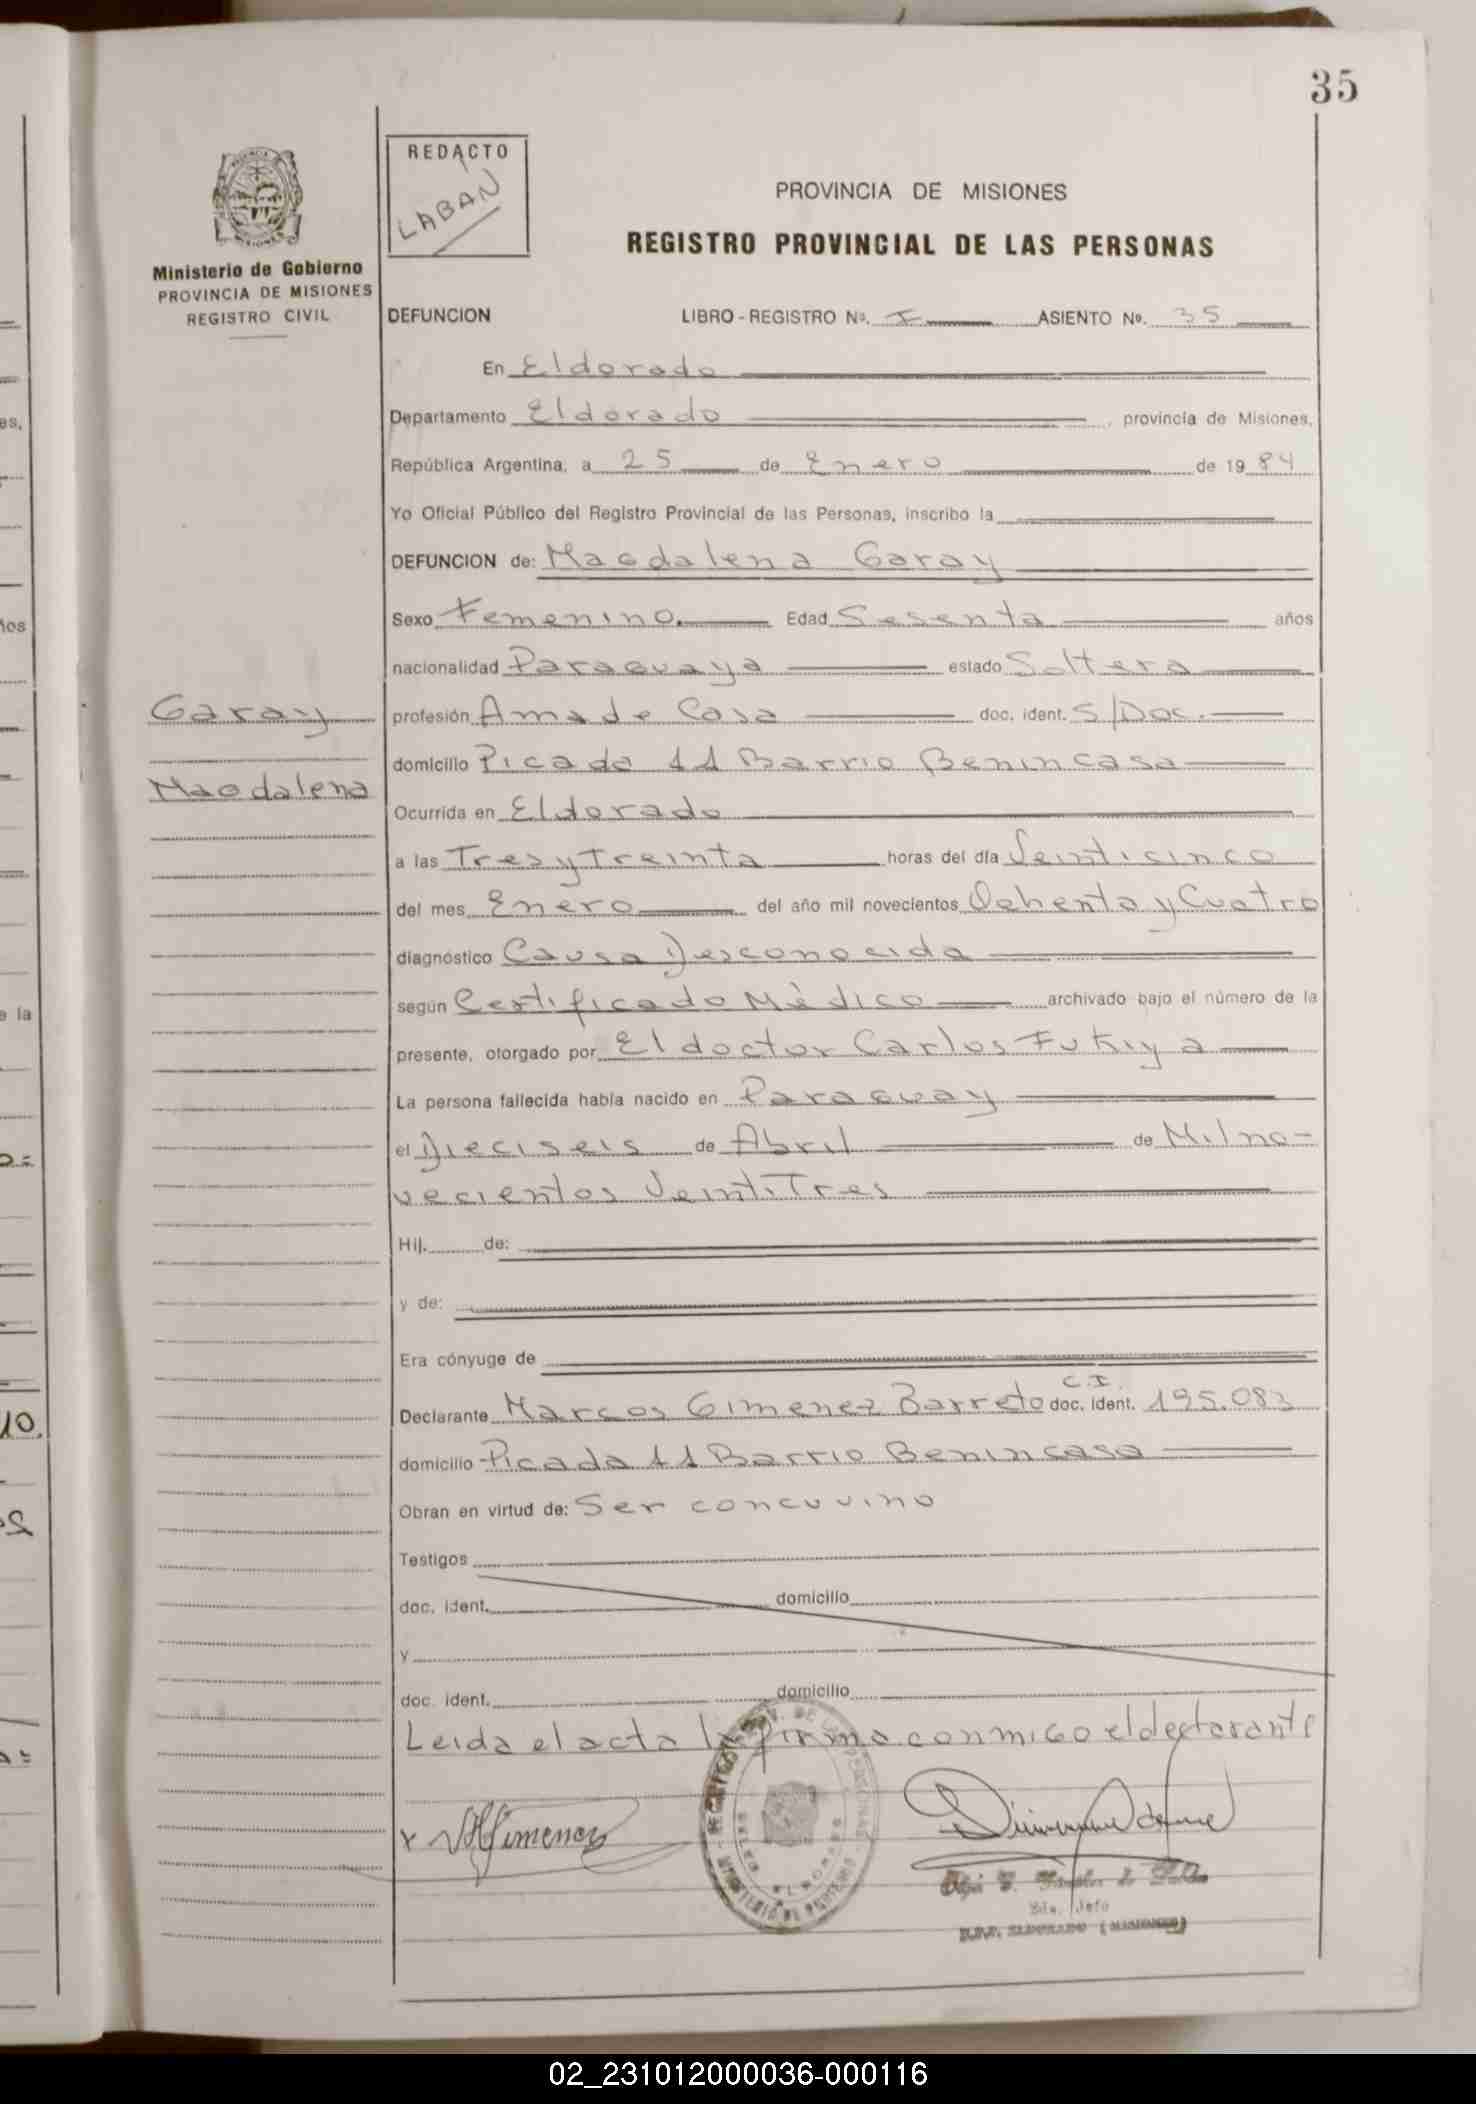 35
REDACTO
LABAN
Ministerio de Gobierno
PROVINCIA DE MISIONES
REGISTRO CIVIL
PROVINCIA DE MISIONES
REGISTRO PROVINCIAL DE LAS PERSONAS
DEFUNCION LIBRO - REGISTRO Nº. I ASIENTO Nº. 35
En Eldorado
Departamento Eldorado, provincia de Misiones,
República Argentina, a 25 de Enero de 1984
Yo Oficial Público del Registro Provincial de las Personas, inscribo la
DEFUNCION de: Magdalena Garay
Sexo Femenino. Edad Sesenta años
nacionalidad Paraguaya estado Soltera
Garay
Magdalena
profesión Ama de Casa doc. ident. S/Doc.
domicilio Picada 11 Barrio Benincasa
Ocurrida en Eldorado
a las Tres y Treinta horas del día Veinticinco
del mes Enero del año mil novecientos Ochenta y Cuatro
diagnóstico Causa Desconocida
según Certificado Médico archivado bajo el número de la
presente, otorgado por El doctor Carlos Fukiya
La persona fallecida había nacido en Paraguay
el Dieciseis de Abril de Milno-
vecientos VeintiTres
Hij. de:
y de:
Era cónyuge de
C.I.
Declarante Marcos Gimenez Barreto doc. ident. 195.083
domicilio Picada 11 Barrio Benincasa
Obran en virtud de: Ser concuvino
Testigos
doc. ident. domicilio
y
doc. ident. domicilio
Leida el acta la firma conmigo el declarante
x Gimenez
Jefe
02_231012000036-000116